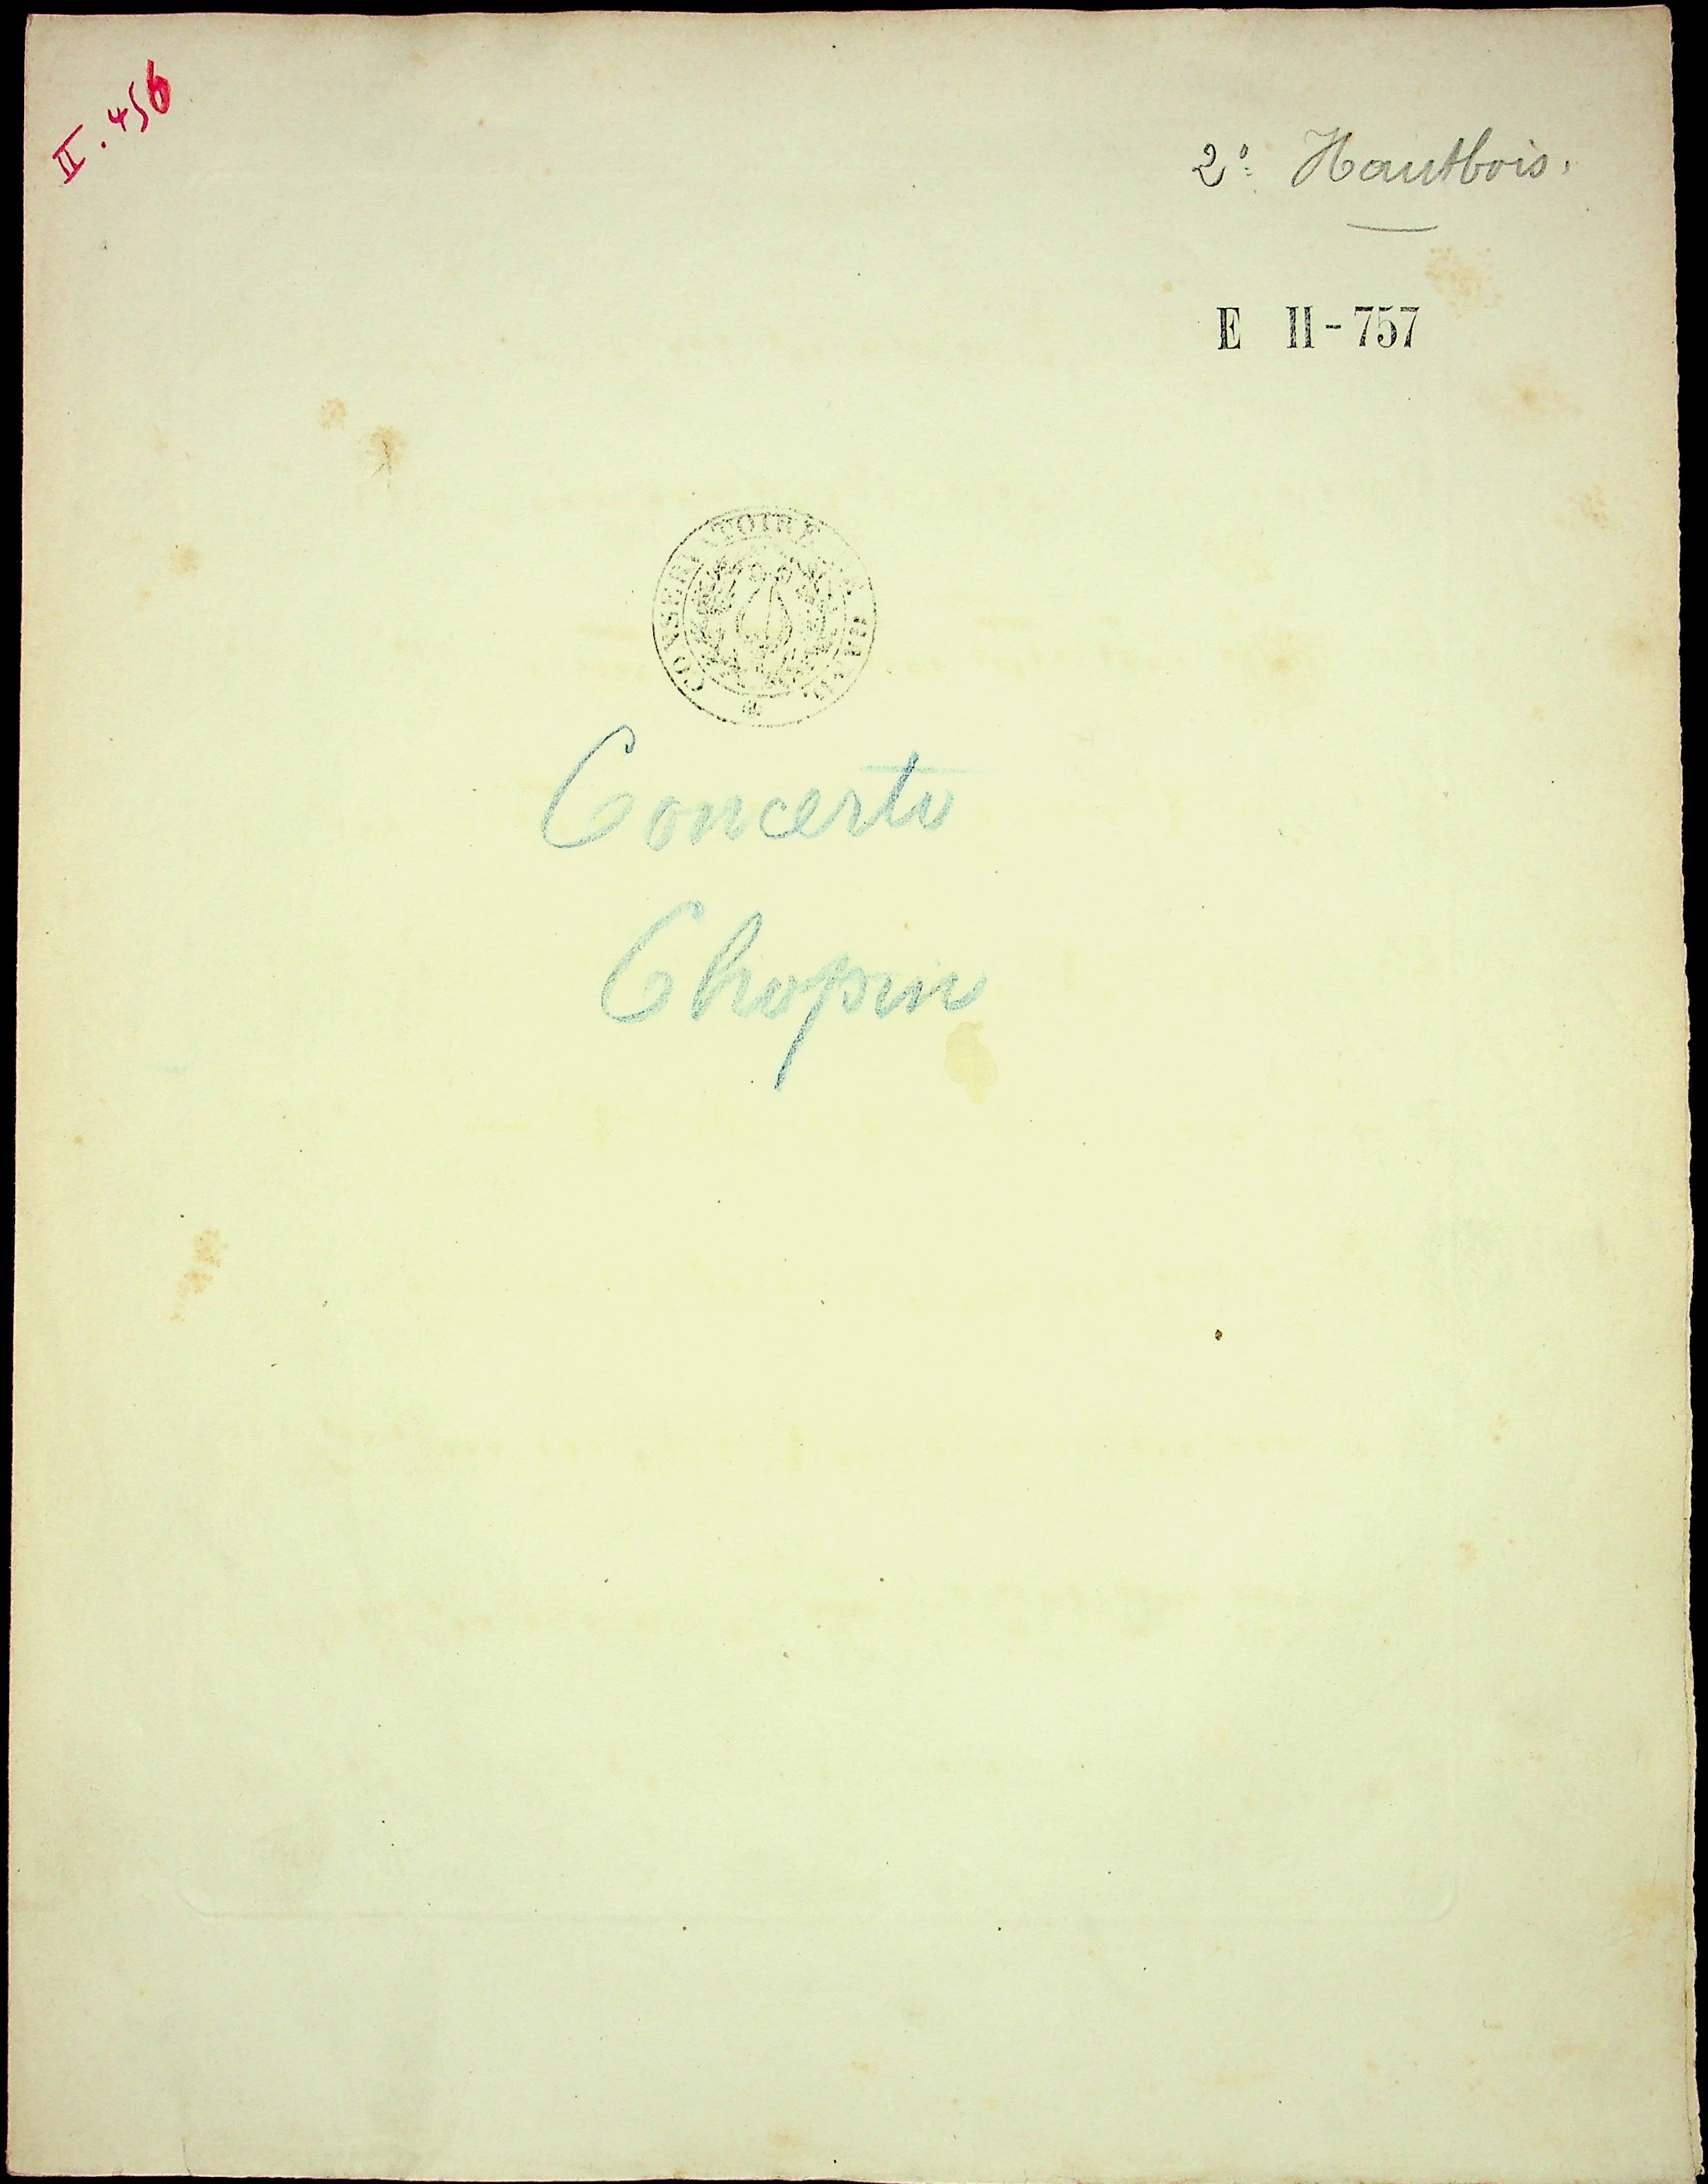 II. 456
2º Hautbois.
E II - 757
CONSERVATOIRE
Concerto
Chopin